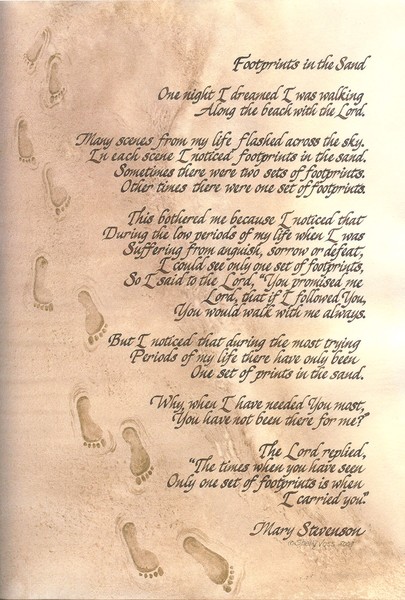 Footprints in the Sand
One night I dreamed I was walking
Along the beach with the Lord.
Many scenes from my life flashed across the sky.
In each scene I noticed footprints in the sand.
Sometimes there were two sets of footprints.
Other times there were one set of footprints.
This bothered me because I noticed that
During the low periods of my life when I was
Suffering from anguish, sorrow or defeat,
I could see only one set of footprints,
So I said to the Lord, "You promised me
Lord, that if I followed You,
You would walk with me always.
But I noticed that during the most trying
Periods of my life there have only been
One set of prints in the sand.
Why, when I have needed You most,
You have not been there for me?"
The Lord replied,
"The times when you have seen
Only one set of footprints is when
I carried you."
Mary Stevenson